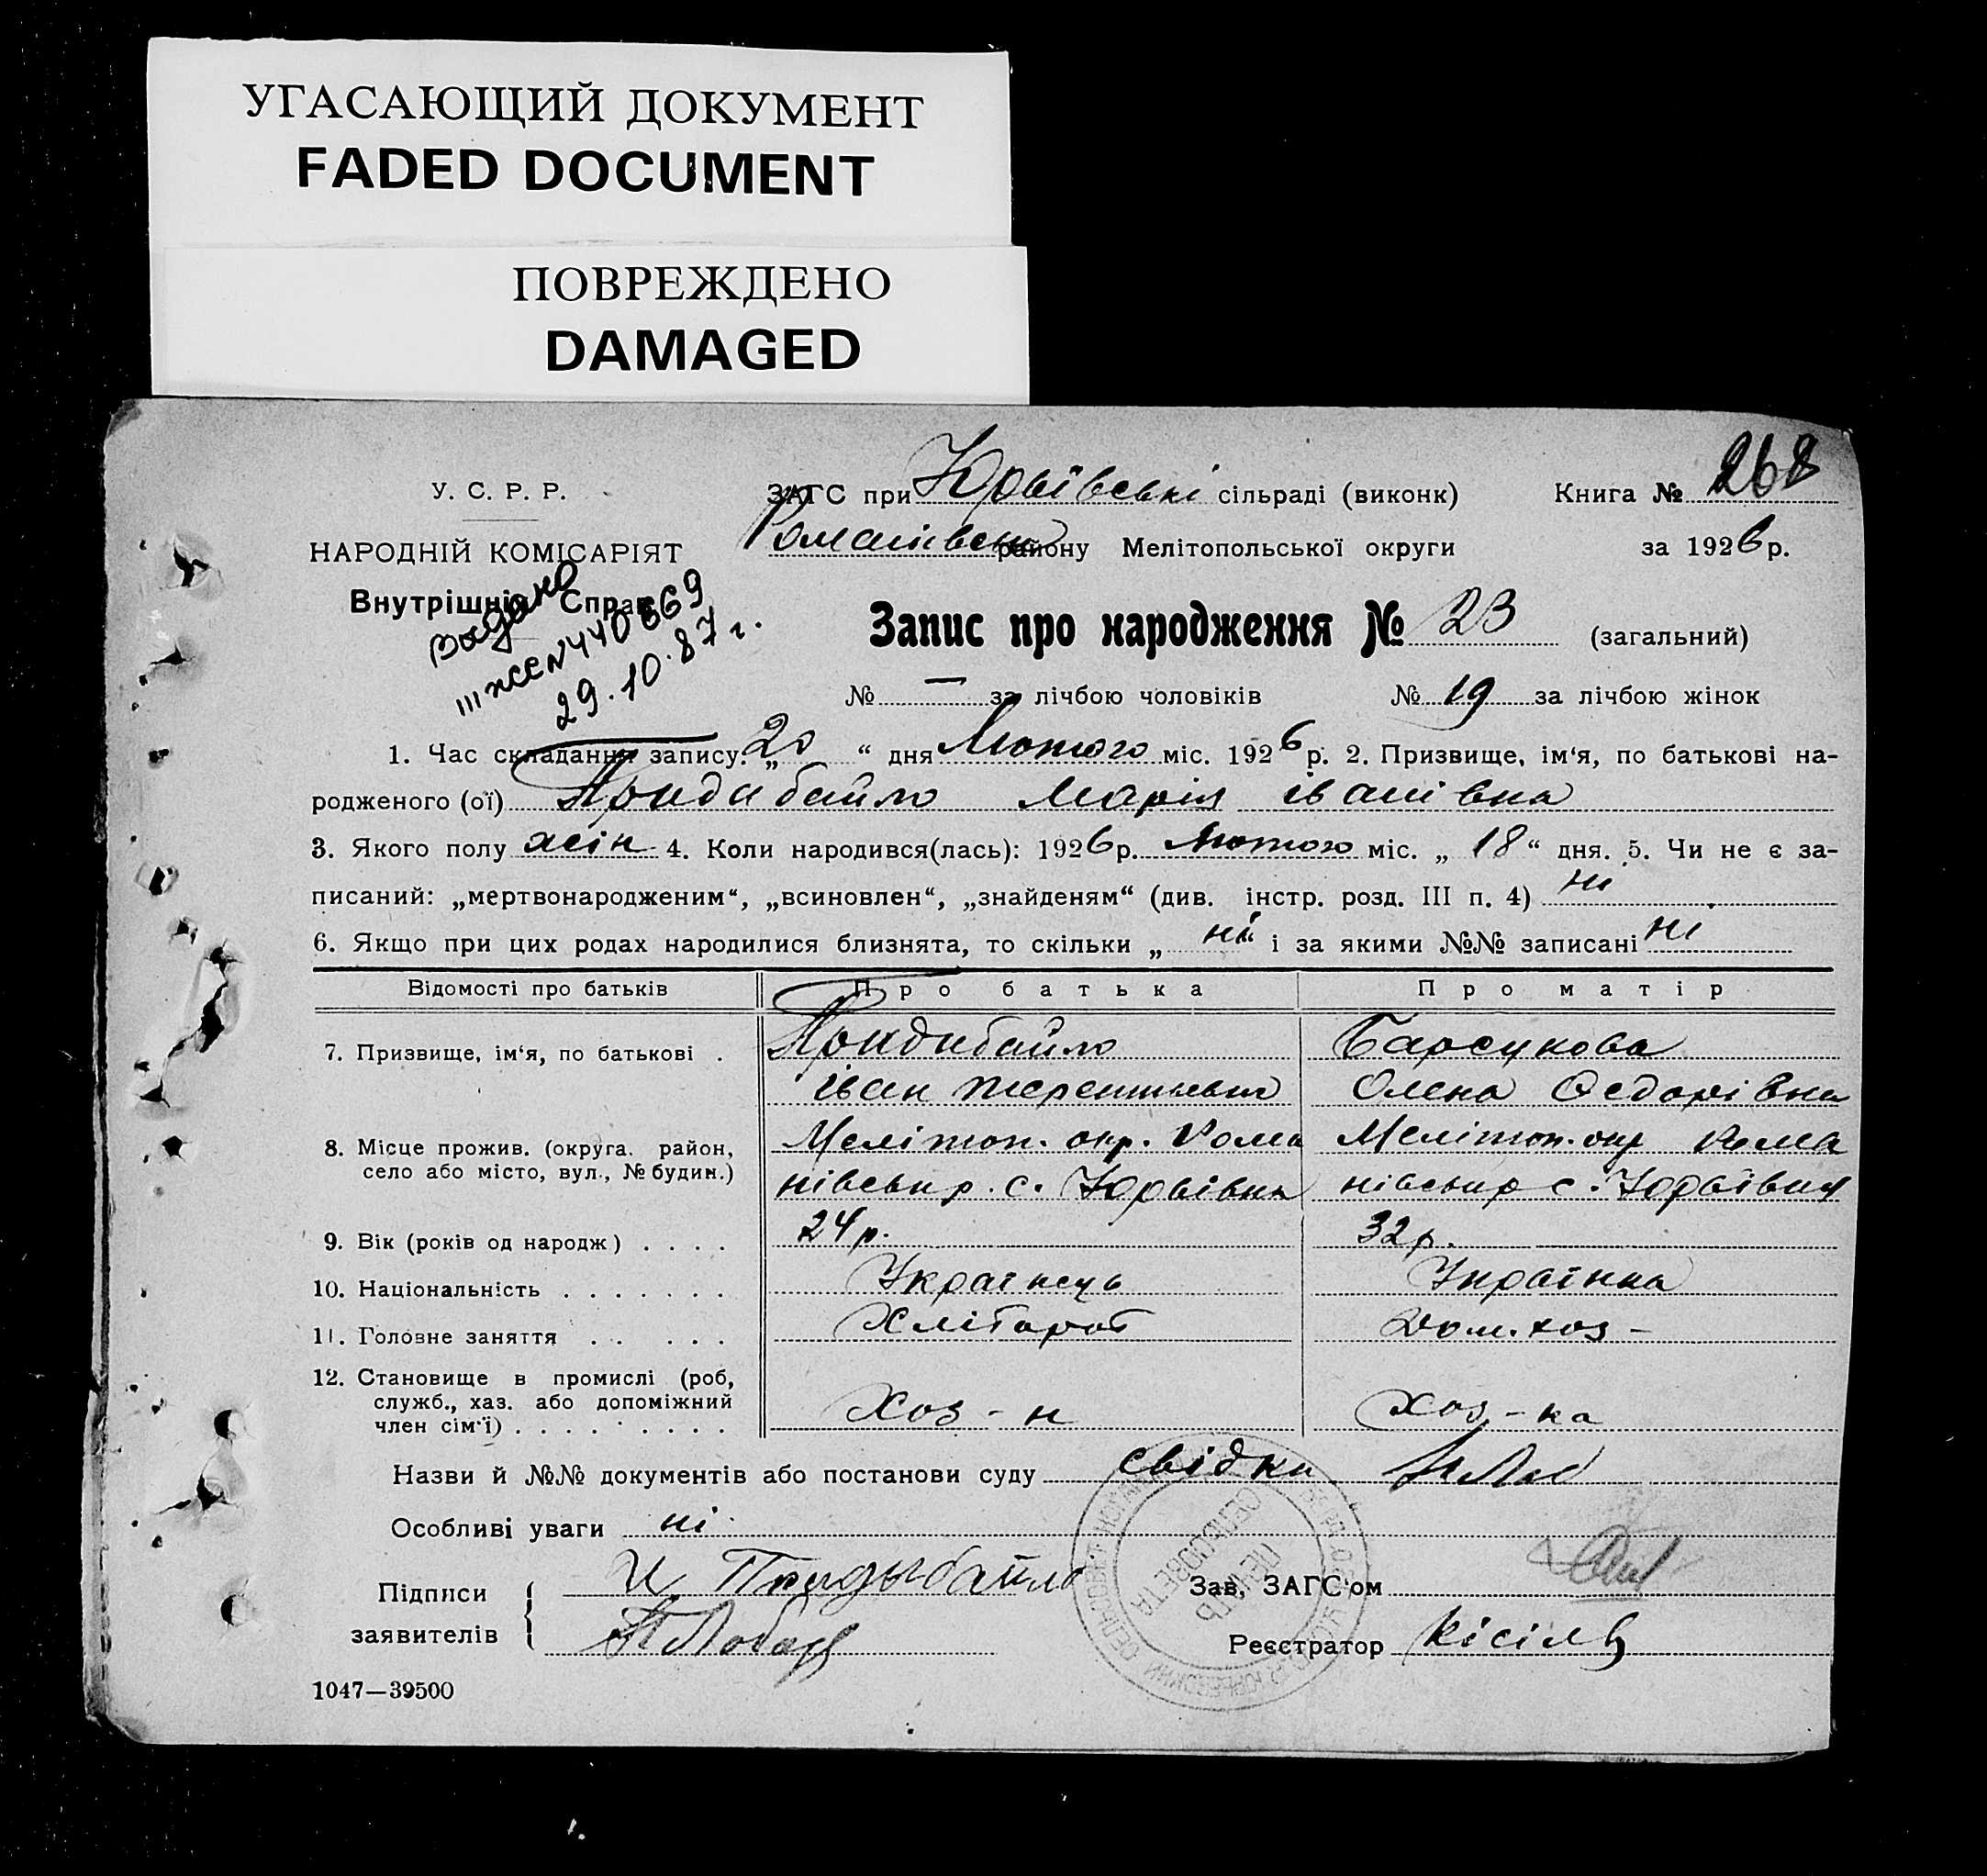 УГАСАЮЩИЙ ДОКУМЕНТ
FADED DOCUMENT
ПОВРЕЖДЕНО
DAMAGED
У. С. Р. Р.
НАРОДНІЙ КОМІСАРІЯТ
Внутрішніх Справ
Выдано
III ЖС №440869
29.10.87 г.
ЗАГС при Юрьївські сільраді (виконк) Книга № 268
Романівськ району Мелітопольської округи за 1926 р.
Запис про народження № 23 (загальний)
№ — за лічбою чоловіків № 19 за лічбою жінок
1. Час складання запису: „ 20 “ дня Лютого міс. 1926 р. 2. Призвище, ім‘я, по батькові на-
родженого (ої) Придибайло Марія івинівна
3. Якого полу жін 4. Коли народився(лась): 1926 р. Лютого міс. „ 18 “ дня. 5. Чи не є за-
писаний: „мертвонародженим“, „всиновлен“, „знайденям“ (див. інстр. розд. III п. 4) ні
6. Якщо при цих родах народилися близнята, то скільки „ ні “ і за якими №№ записані ні
Відомості про батьків Про батька Про матір
7. Призвище, ім‘я, по батькові . Придибайло Барсукова
іван Олена Федорівна
8. Місце прожив. (округа. район, село або місто, вул., № будин.) Меліитоп. окр. Рома Мелітоп. окр Рома
нівськ р. с. Юрьівка нівськ р с. Юрьївка
9. Вік (років од народж) . . . . 24 р. 32 р.
10. Національність . . . . . . . Українець Українка
11. Головне заняття . . . . . Хлібороб Дом. хоз -
12. Становище в промислі (роб, служб., хаз. або допоміжний член сім‘ї) . . . . . . . . . Хоз - н Хоз - ка
Назви й №№ документів або постанови суду свідки
Особливі уваги ні
Підписи заявителів И Придыбайло
Зав. ЗАГС‘ом
Реєстратор Кісіль
ПЕЧАТЬ
СЕЛЬСОВЕТА
1047—39500